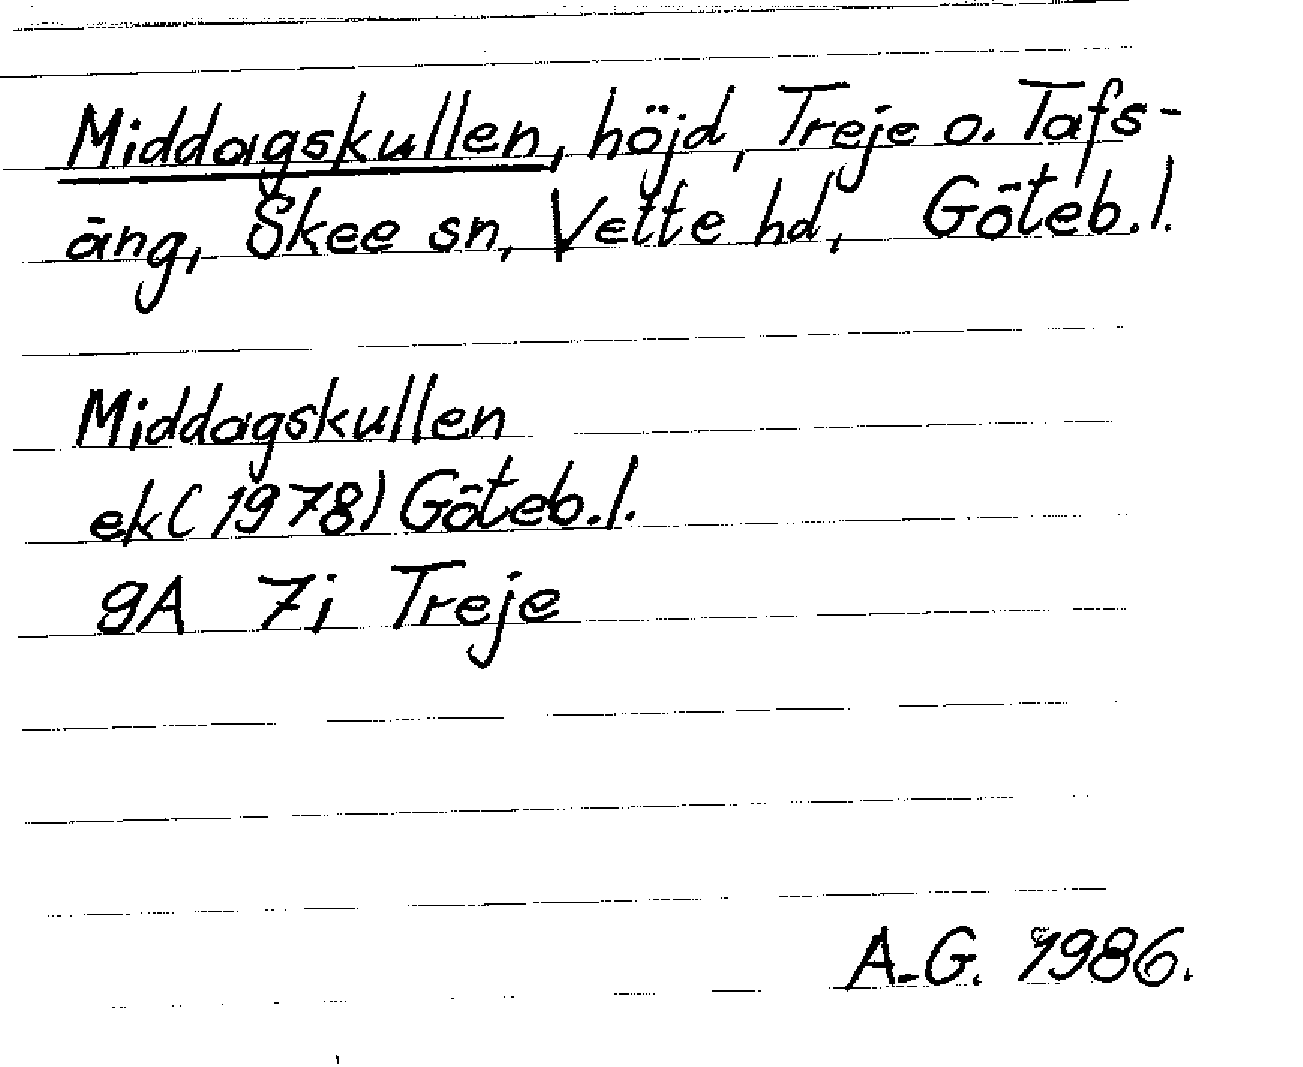 Middagskullen, höjd, Treje o. Tafs-
äng, Skee sn, Vette hd, Göteb.l.
Middagskullen
ek (1978) Göteb.l.
9A 7i Treje
A-G. 1986.